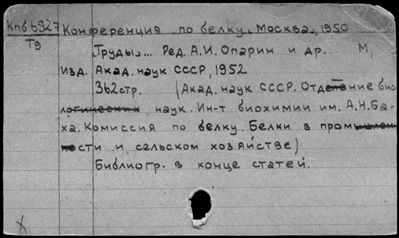 Кпб 6927 Конференция по белку. Москва, 1950
Т9
„Труды"... Ред. А.И. Опарин и др. М,
Изд. Акад. наук СССР, 1952
362стр. (Акад. наук СССР. Отделение био
логических наук. Ин-т биохимии им. А.Н.Ба-
ха. Комиссия по белку. Белки в промышлен
ности и сельском хозяйстве)
Библиогр. в конце статей.